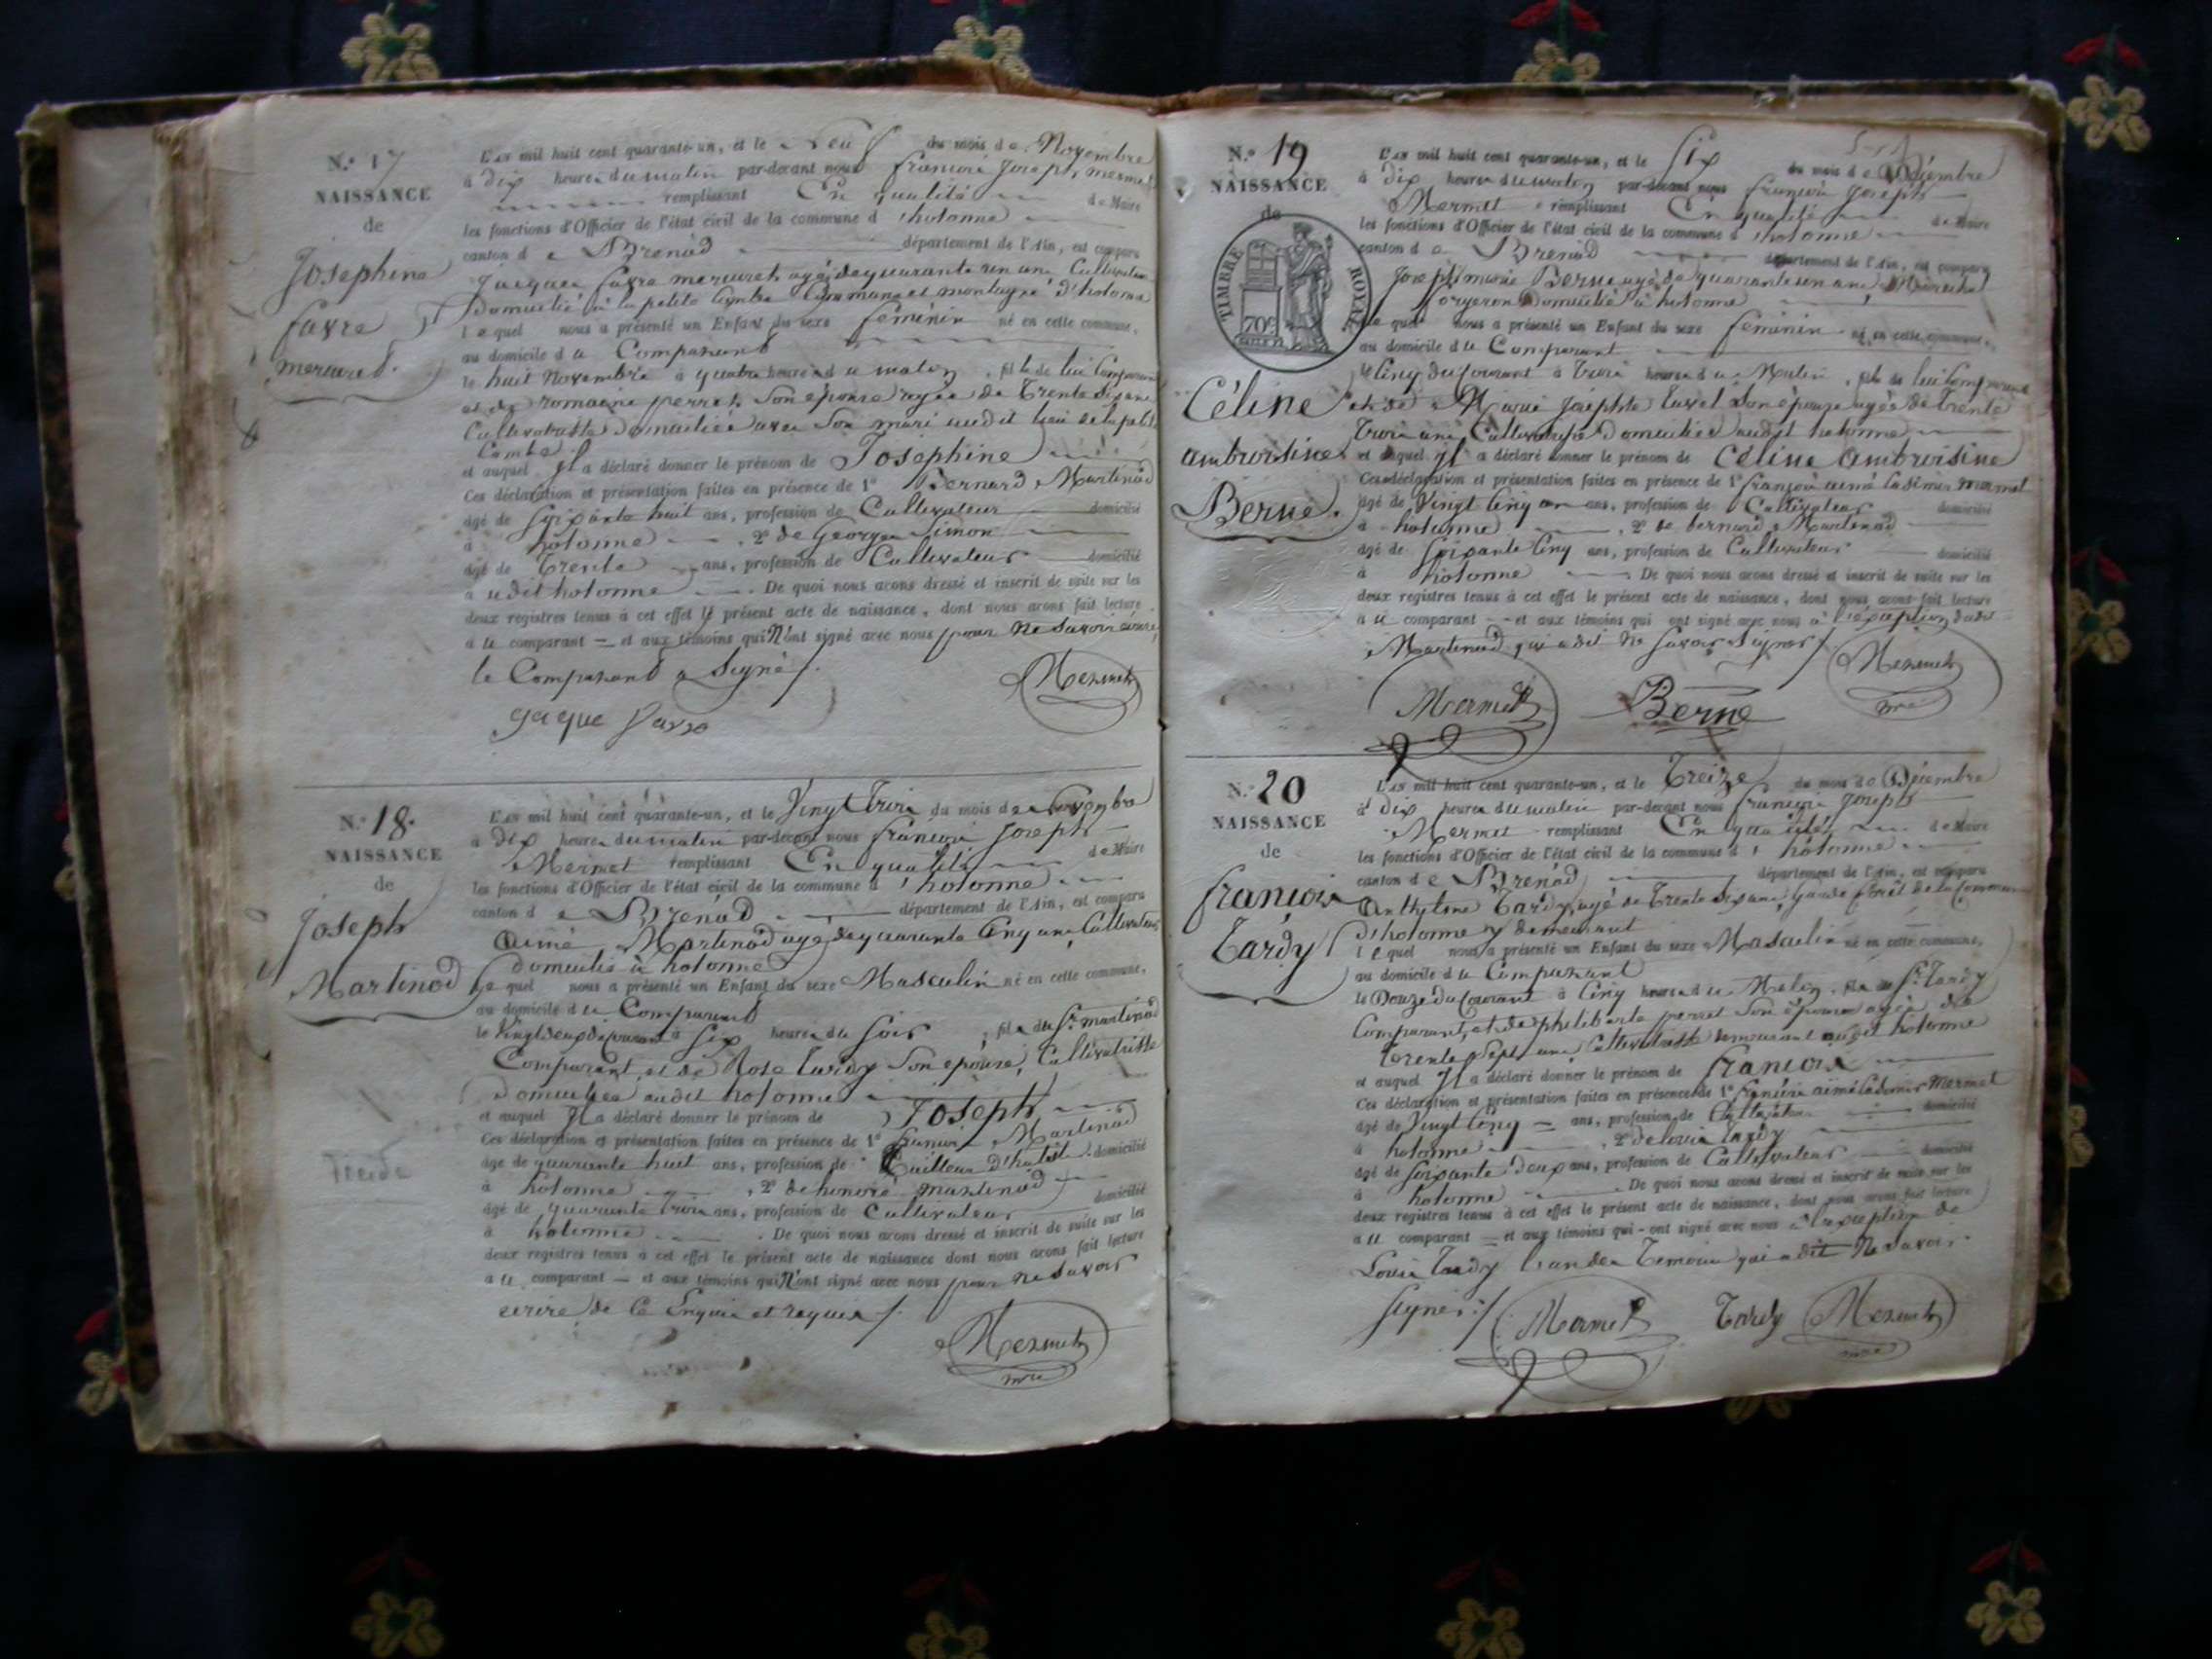 N.º 17
NAISSANCE
de
Josephine
favre
mercuret.
L'an mil huit cent quarante-un, et le Neuf du mois de Novembre
à dix heures du matin par-devant nous françois Joseph mermet
remplissant En qualité de Maire
les fonctions d'Officier de l'état civil de la commune d'hotonne
canton de Brenod département de l'Ain, est comparu
Jacques favre mercuret agé de quarante un ans Cultivateur
Domicilié à la petite Combe Commune et montagne d'hotonne
lequel nous a présenté un Enfant du sexe féminin né en cette commune,
au domicile du Comparant
le huit Novembre à quatre heures du matin, fille de lui Comparant
et de romaine perret Son épouse agée de Trente Six ans
Cultivatrice Domiciliée avec Son mari audit lieu de la petite
Combe
et auquel Il a déclaré donner le prénom de Josephine
Ces déclaration et présentation faites en présence de 1º Bernard Martinod
âgé de soixante huit ans, profession de Cultivateur domicilié
à hotonne 2º de George Simon
âgé de Trente ans, profession de Cultivateur domicilié
audit hotonne De quoi nous avons dressé et inscrit de suite sur les
deux registres tenus à cet effet le présent acte de naissance, dont nous avons fait lecture
au comparant et aux témoins qui N'ont signé avec nous pour Ne Savoir écrire,
le Comparant a Signé /.
gaque favre
Mermet
N.º 18.
NAISSANCE
de
Joseph
Martinod
L'an mil huit cent quarante-un, et le Vingt Trois du mois de Novembre
à dix heures du matin par-devant nous françois Joseph
Mermet remplissant En qualité de Maire
les fonctions d'Officier de l'état civil de la commune d'hotonne
canton de Brenod département de l'Ain, est comparu
Aimé Martinod agé de quarante Cinq ans Cultivateur
domicilié à hotonne
lequel nous a présenté un Enfant du sexe Masculin né en cette commune,
au domicile du Comparant
le Vingt deux du Courant à Six heures du Soir, fils du Sr. martinod
Comparant et de Rose tardy Son épouse, Cultivatrice
Domiciliée audit hotonne
et auquel Il a déclaré donner le prénom de Joseph
Ces déclaration et présentation faites en présence de 1º françois Martinod
âgé de quarante huit ans, profession de Tailleur d'habit domicilié
à hotonne 2º de honoré martinod
âgé de quarante Trois ans, profession de Cultivateur domicilié
à hotonne De quoi nous avons dressé et inscrit de suite sur les
deux registres tenus à cet effet le présent acte de naissance dont nous avons fait lecture
au comparant et aux témoins qui N'ont signé avec nous pour Ne Savoir
écrire de Ce Enquis et requis /.
Mermet
mre
N.º 19
NAISSANCE
de
TIMBRE ROYAL
70c
Céline
ambroisine
Berne.
L'an mil huit cent quarante-un, et le Six du mois de Décembre
à dix heures du matin par-devant nous françois Joseph
Mermet remplissant En qualité de Maire
les fonctions d'Officier de l'état civil de la commune d'hotonne
canton de Brenod département de l'Ain, est comparu
Joseph marie Berne agé de quarante un ans Maréchal
forgeron Domicilié à hotonne
lequel nous a présenté un Enfant du sexe féminin né en cette commune,
au domicile du Comparant
le Cinq du Courant à Trois heures du Matin, fille de lui Comparant
et de Marie Josephte Son épouse agée de Trente
Trois ans, Cultivatrice Domiciliée audit hotonne
et auquel Il a déclaré donner le prénom de Céline Ambroisine
Ces déclaration et présentation faites en présence de 1º françois aimé Cadimir Mermet
âgé de Vingt Cinq ans, profession de Cultivateur domicilié
à hotonne 2º de bernard Martinod
âgé de Soixante Cinq ans, profession de Cultivateur domicilié
à hotonne De quoi nous avons dressé et inscrit de suite sur les
deux registres tenus à cet effet le présent acte de naissance, dont nous avons fait lecture
au comparant et aux témoins qui ont signé avec nous à l'exception dudit
Martinod qui a dit Ne Savoir Signer /.
Mermet
Berne
Mermet
mre
N.º 20
NAISSANCE
de
françois
Tardy
L'an mil huit cent quarante-un, et le Treize du mois de Décembre
à dix heures du matin par-devant nous françois Joseph
Mermet remplissant En qualité de Maire
les fonctions d'Officier de l'état civil de la commune d'hotonne
canton de Brenod département de l'Ain, est comparu
Anthelme Tardy, agé de Trente Six ans, Garde forêt de la Commune
d'hotonne y demeurant
lequel nous a présenté un Enfant du sexe Masculin né en cette commune,
au domicile du Comparant
le Douze du Courant à Cinq heures du Matin, fils du Sr. Tardy
Comparant, et de philiberte perret Son épouse agée de
Trente Sept ans Cultivatrice demeurant audit hotonne
et auquel Il a déclaré donner le prénom de françois
Ces déclaration et présentation faites en présence de 1º françois aimé Cadimir Mermet
âgé de Vingt Cinq ans, profession de Cultivateur domicilié
à hotonne 2º de louis tardy
âgé de Soixante Deux ans, profession de Cultivateur domicilié
à hotonne De quoi nous avons dressé et inscrit de suite sur les
deux registres tenus à cet effet le présent acte de naissance, dont nous avons fait lecture
au comparant et aux témoins qui ont signé avec nous à l'exception de
Louis Tardy l'un des Temoins qui a dit Ne Savoir
signer /.
Mermet
Tardy
Mermet
mre